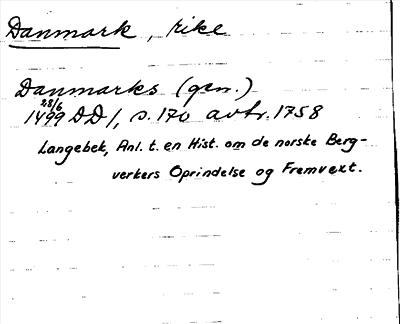 Danmark, rike
Danmarks (gen.)
28/6
1499 DD1, s. 170 avtr. 1758
Langebek, Anl. t. en Hist. om de norske Berg-
verkers Oprindelse og Fremvext.